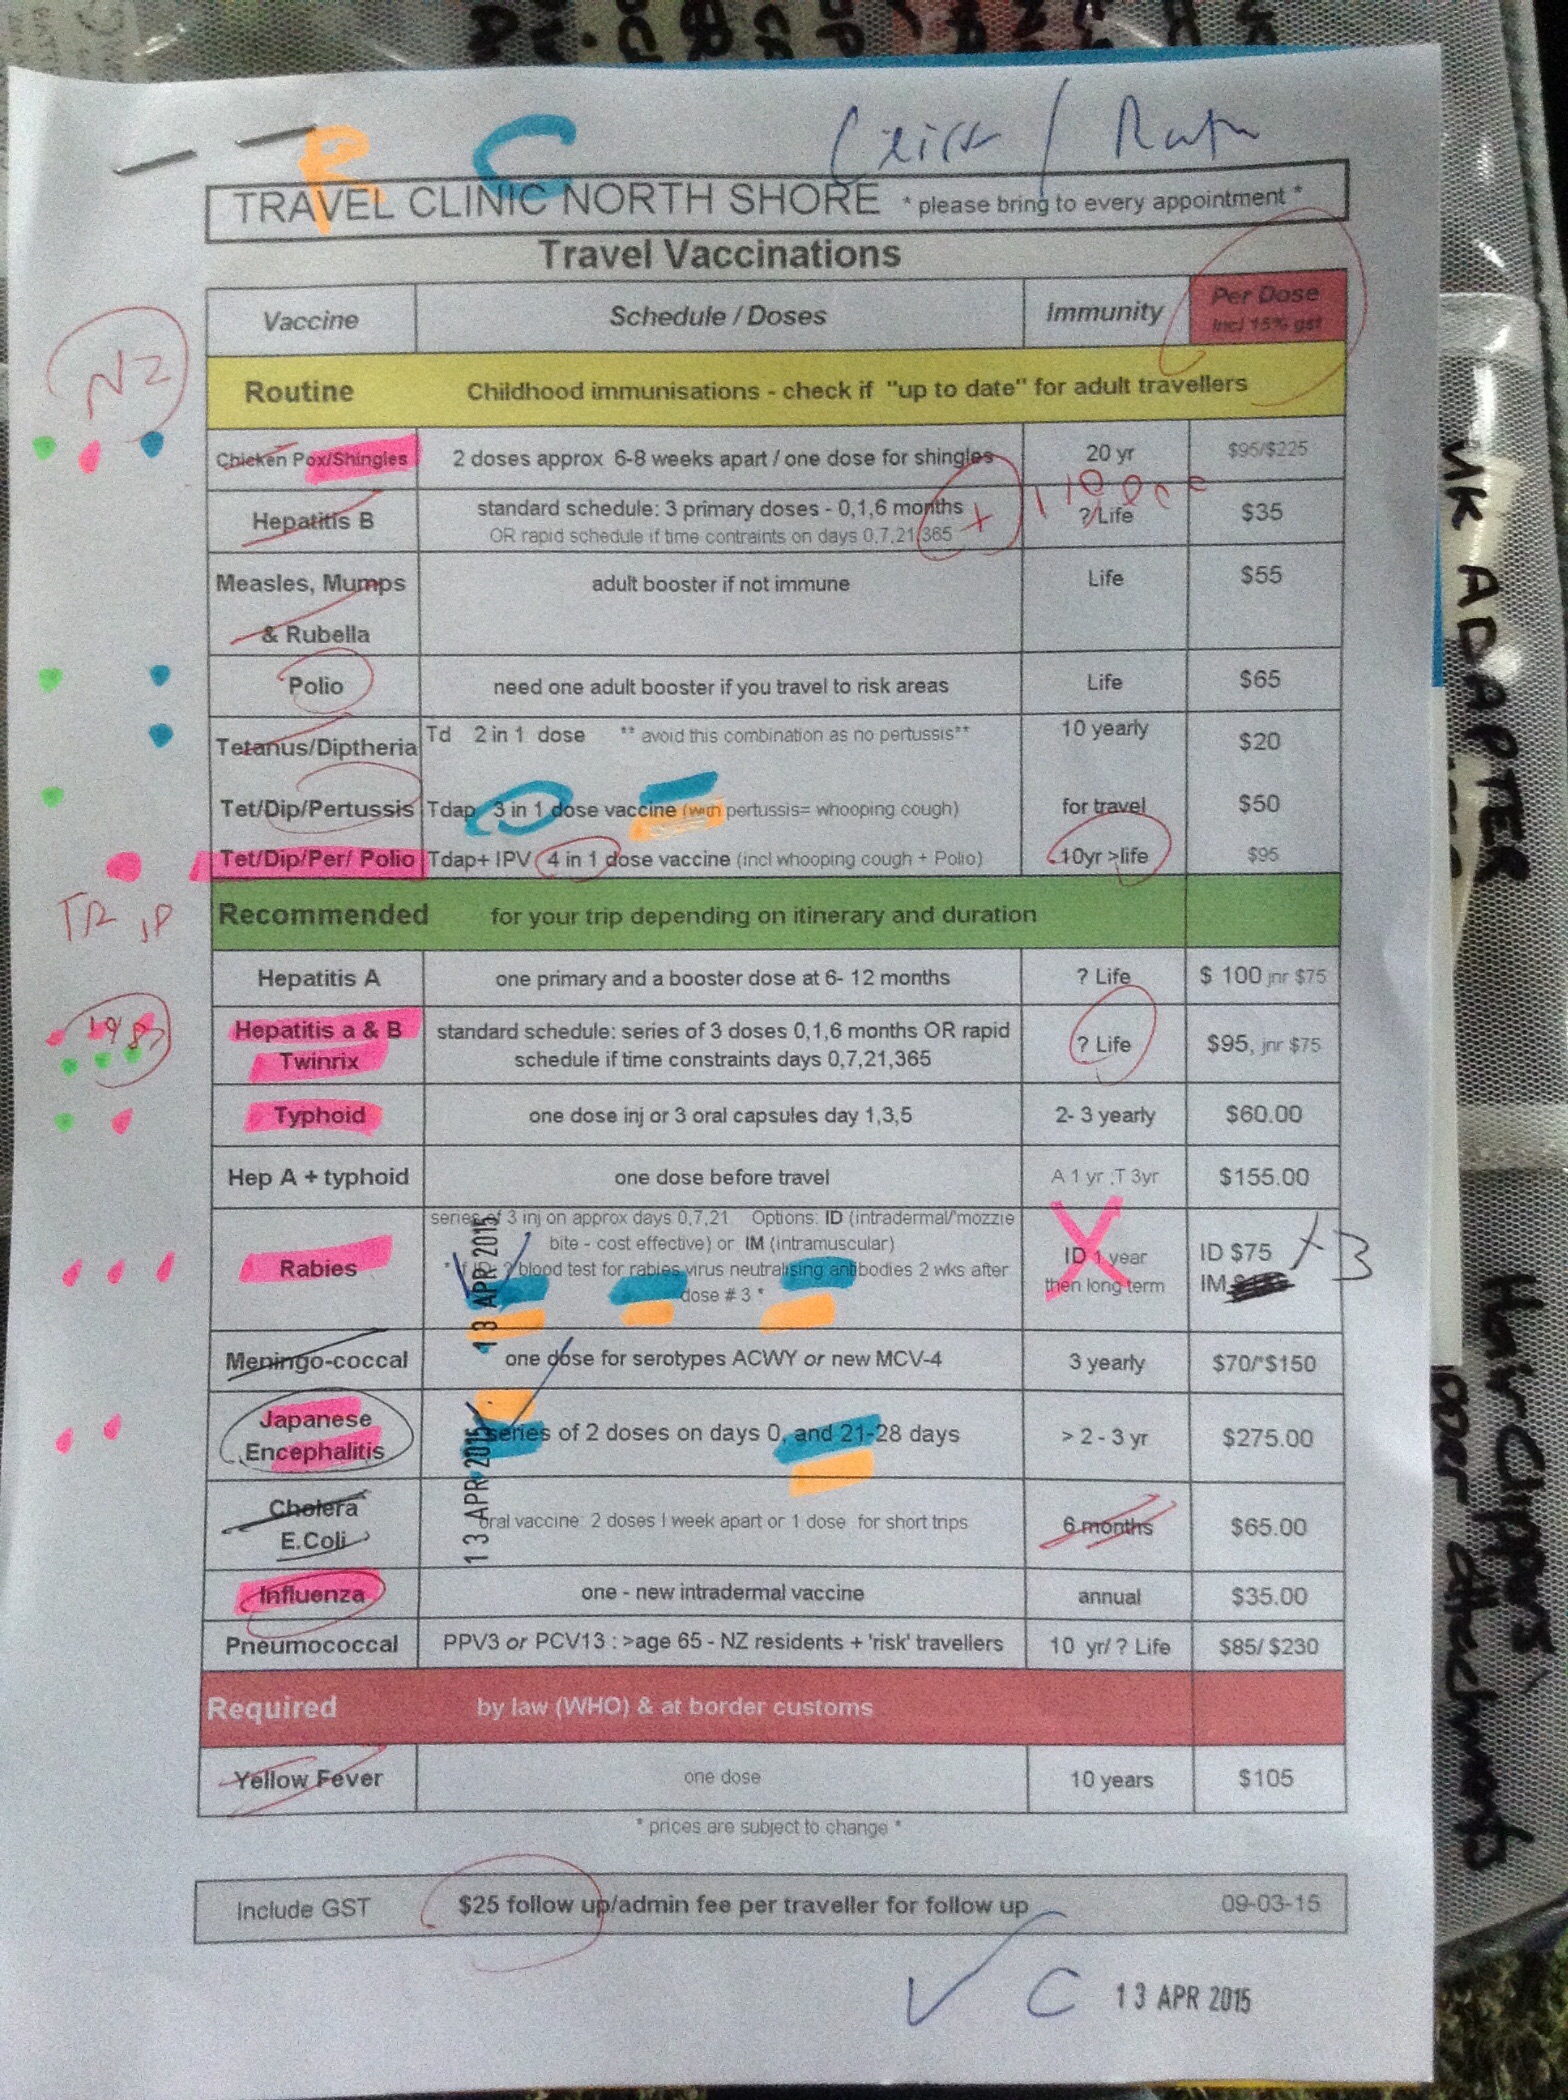 R C
TRAVEL CLINIC NORTH SHORE * please bring to every appointment *
Travel Vaccinations
Vaccine Schedule / Doses Immunity Per Dose
Incl 15% gst
NZ
Routine Childhood immunisations - check if "up to date" for adult travellers
Chicken Pox/Shingles 2 doses approx 6-8 weeks apart / one dose for shingles 20 yr $95/$225
Hepatitis B standard schedule: 3 primary doses - 0,1,6 months ? Life $35
OR rapid schedule if time contraints on days 0,7,21,365 +
Measles, Mumps adult booster if not immune Life $55
& Rubella
Polio need one adult booster if you travel to risk areas Life $65
Tetanus/Diptheria Td 2 in 1 dose ** avoid this combination as no pertussis** 10 yearly $20
Tet/Dip/Pertussis Tdap 3 in 1 dose vaccine (with pertussis= whooping cough) for travel $50
Tet/Dip/Per/ Polio Tdap+ IPV 4 in 1 dose vaccine (incl whooping cough + Polio) 10yr >life $95
TRIP
Recommended for your trip depending on itinerary and duration
Hepatitis A one primary and a booster dose at 6- 12 months ? Life $ 100 jnr $75
Hepatitis a & B standard schedule: series of 3 doses 0,1,6 months OR rapid ? Life $95, jnr $75
Twinrix schedule if time constraints days 0,7,21,365
Typhoid one dose inj or 3 oral capsules day 1,3,5 2- 3 yearly $60.00
Hep A + typhoid one dose before travel A 1 yr ;T 3yr $155.00
series of 3 inj on approx days 0,7,21 Options: ID (intradermal/'mozzie
bite - cost effective) or IM (intramuscular)
Rabies blood test for rabies virus neutralising antibodies 2 wks after ID 1 year ID $75 x 3
dose # 3 * then long term IM
13 APR 2015
Meningo-coccal one dose for serotypes ACWY or new MCV-4 3 yearly $70/*$150
Japanese series of 2 doses on days 0, and 21-28 days > 2 - 3 yr $275.00
Encephalitis
13 APR 2015
Cholera oral vaccine: 2 doses I week apart or 1 dose for short trips 6 months $65.00
E.Coli
Influenza one - new intradermal vaccine annual $35.00
Pneumococcal PPV3 or PCV13 : >age 65 - NZ residents + 'risk' travellers 10 yr/ ? Life $85/ $230
Required by law (WHO) & at border customs
Yellow Fever one dose 10 years $105
* prices are subject to change *
Include GST $25 follow up/admin fee per traveller for follow up 09-03-15
C 13 APR 2015
UK ADAPTER
Hair Clippers